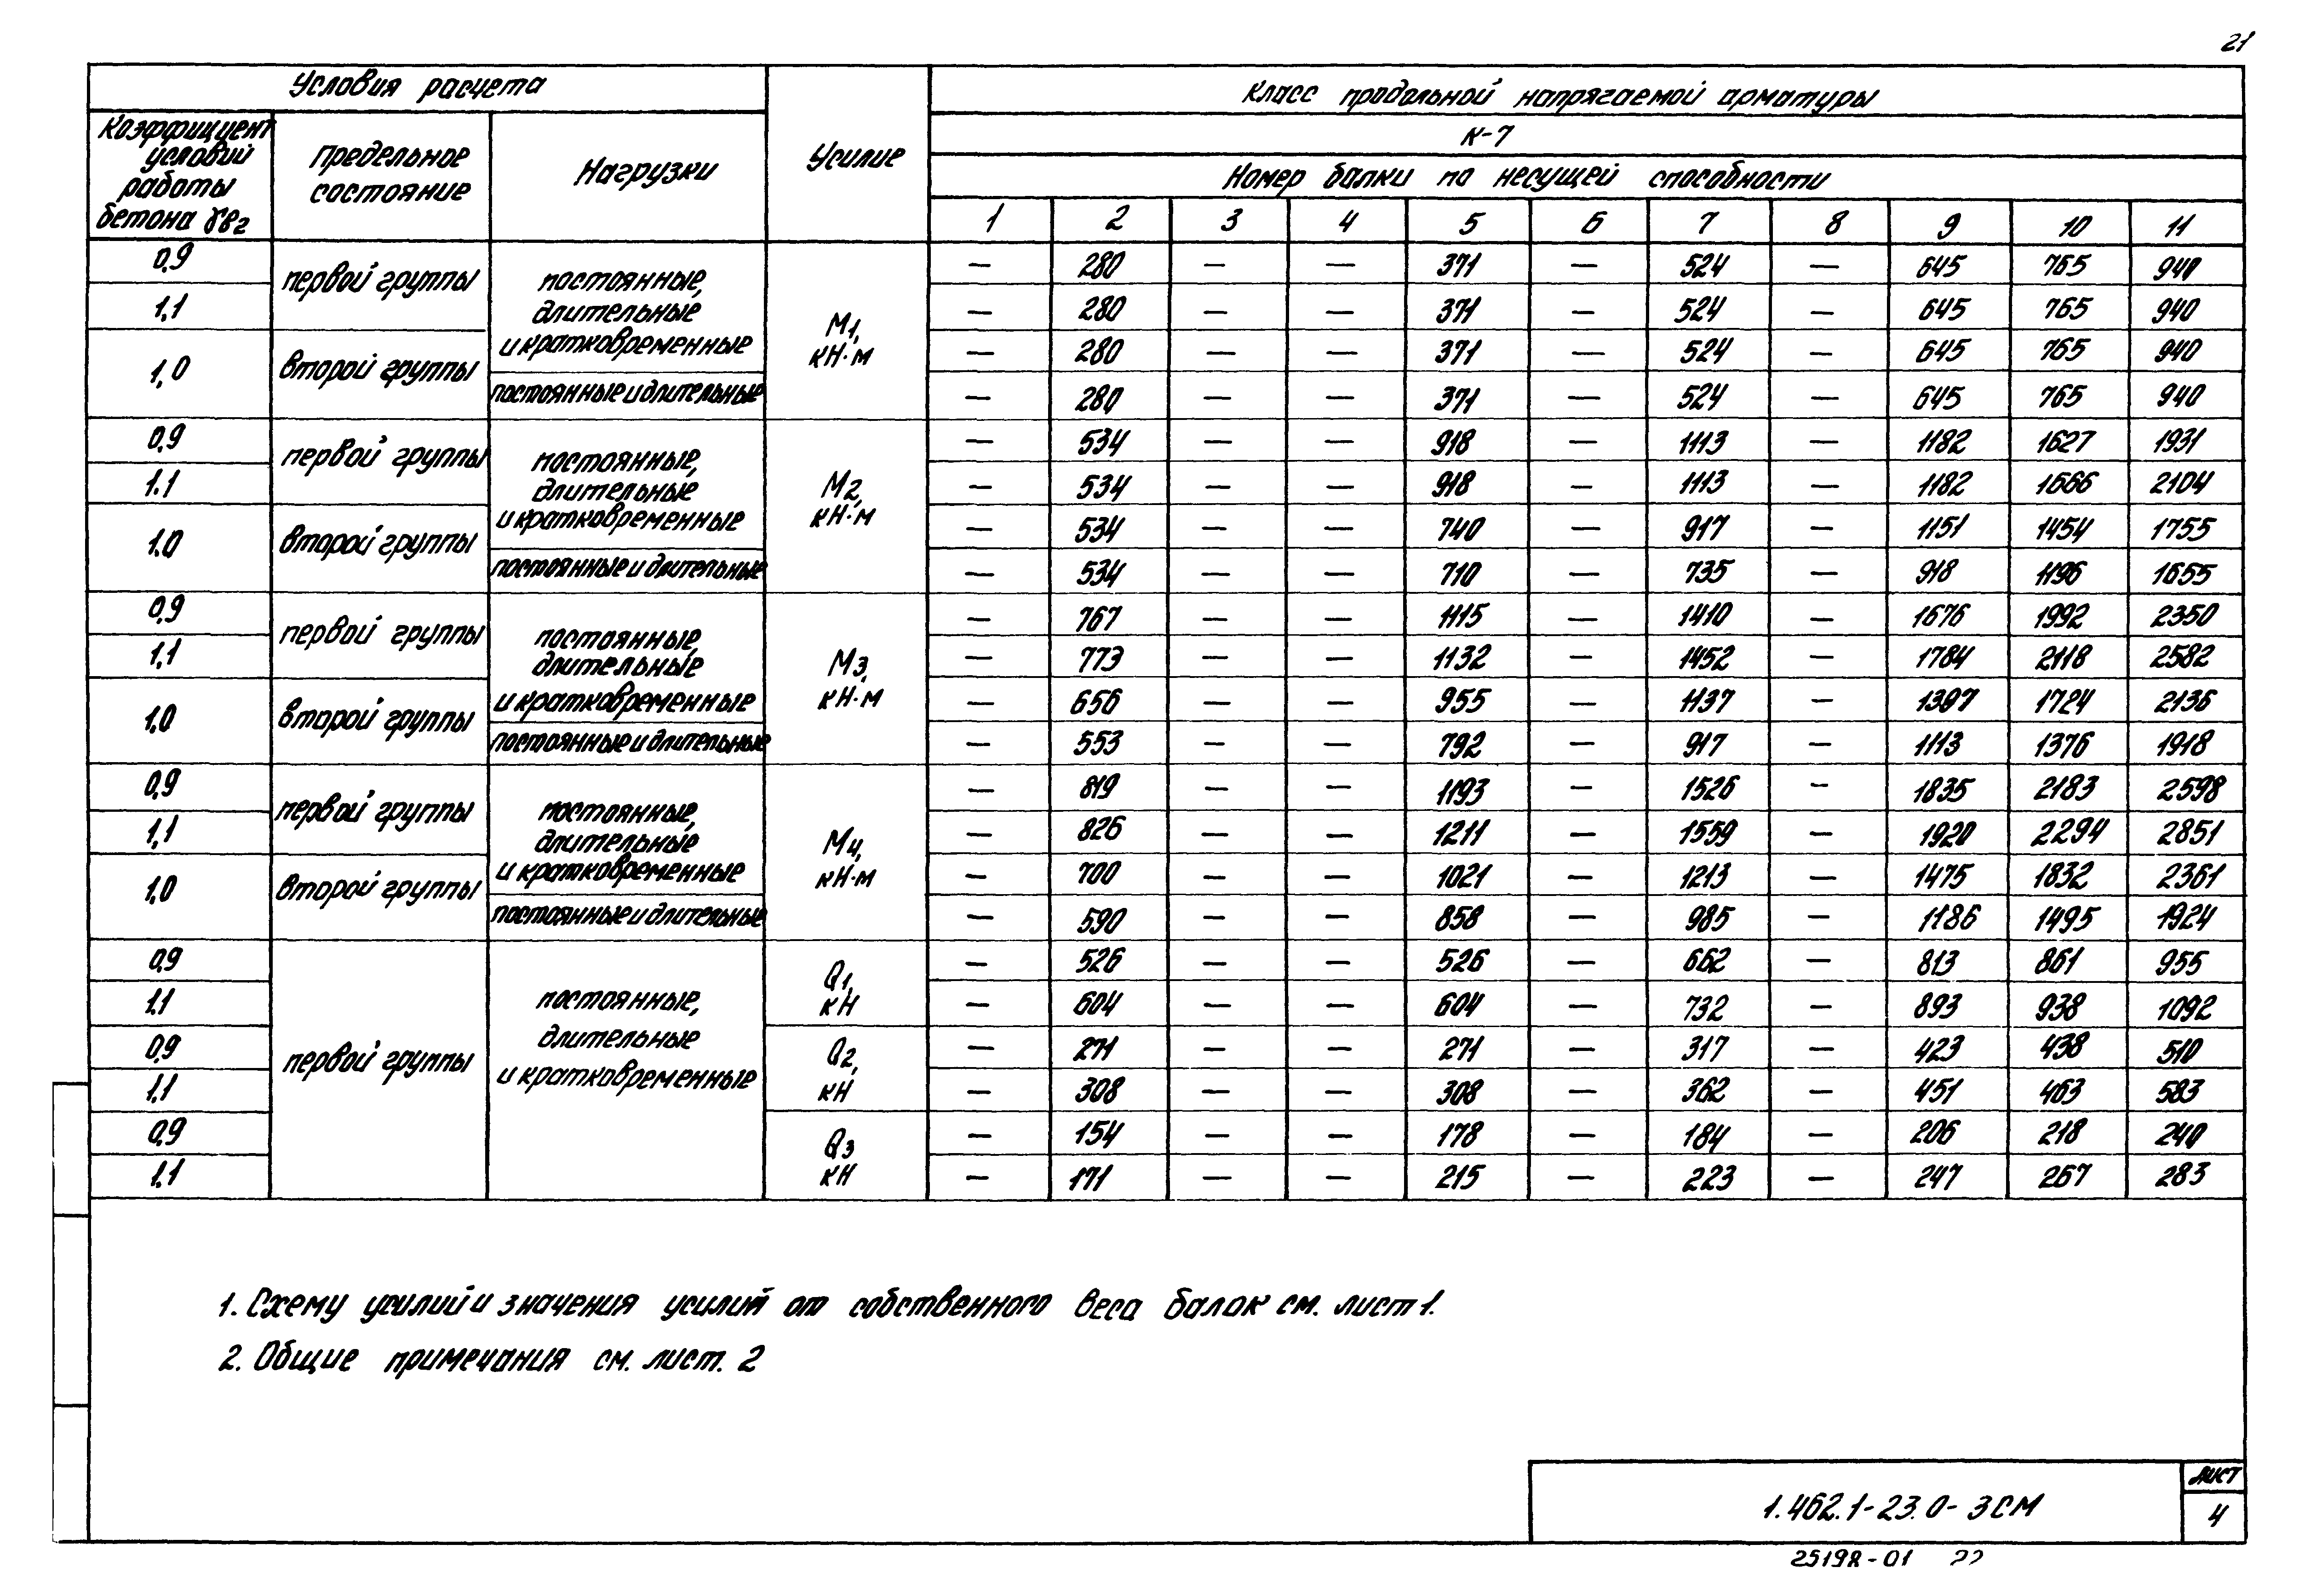 21
Условия расчета
Усилие
Класс продольной напрягаемой арматуры
Коэффициент условий работы бетона γв2
Предельное состояние
Нагрузки
К-7
Номер балки по несущей способности
1 2 3 4 5 6 7 8 9 10 11
0,9 первой группы постоянные, длительные и кратковременные М1, кН·м — 280 — — 371 — 524 — 645 765 940
1,1 — 280 — — 371 — 524 — 645 765 940
1,0 второй группы — 280 — — 371 — 524 — 645 765 940
постоянные и длительные — 280 — — 371 — 524 — 645 765 940
0,9 первой группы постоянные, длительные и кратковременные М2, кН·м — 534 — — 918 — 1113 — 1182 1627 1931
1.1 — 534 — — 918 — 1113 — 1182 1666 2104
1.0 второй группы — 534 — — 740 — 917 — 1151 1454 1755
постоянные и длительные — 534 — — 710 — 735 — 918 1196 1655
0,9 первой группы постоянные, длительные и кратковременные М3, кН·м — 767 — — 1115 — 1410 — 1676 1992 2350
1,1 — 773 — — 1132 — 1452 — 1784 2118 2582
1,0 второй группы — 656 — — 955 — 1137 — 1397 1724 2136
постоянные и длительные — 553 — — 792 — 917 — 1113 1376 1918
0,9 первой группы постоянные, длительные и кратковременные М4, кН·м — 819 — — 1193 — 1526 — 1835 2183 2598
1,1 — 826 — — 1211 — 1559 — 1920 2294 2851
1,0 второй группы — 700 — — 1021 — 1213 — 1475 1832 2361
постоянные и длительные — 590 — — 858 — 985 — 1186 1495 1924
0,9 первой группы постоянные, длительные и кратковременные Q1, кН — 526 — — 526 — 662 — 813 861 955
1.1 — 604 — — 604 — 732 — 893 938 1092
0,9 Q2, кН — 271 — — 271 — 317 — 423 438 510
1,1 — 308 — — 308 — 362 — 451 463 583
0,9 Q3 кН — 154 — — 178 — 184 — 206 218 240
1,1 — 171 — — 215 — 223 — 247 267 283
1. Схему усилий и значения усилий от собственного веса балок см. лист 1.
2. Общие примечания см. лист. 2
1.462.1-23.0-3СМ
лист
4
25198-01 22